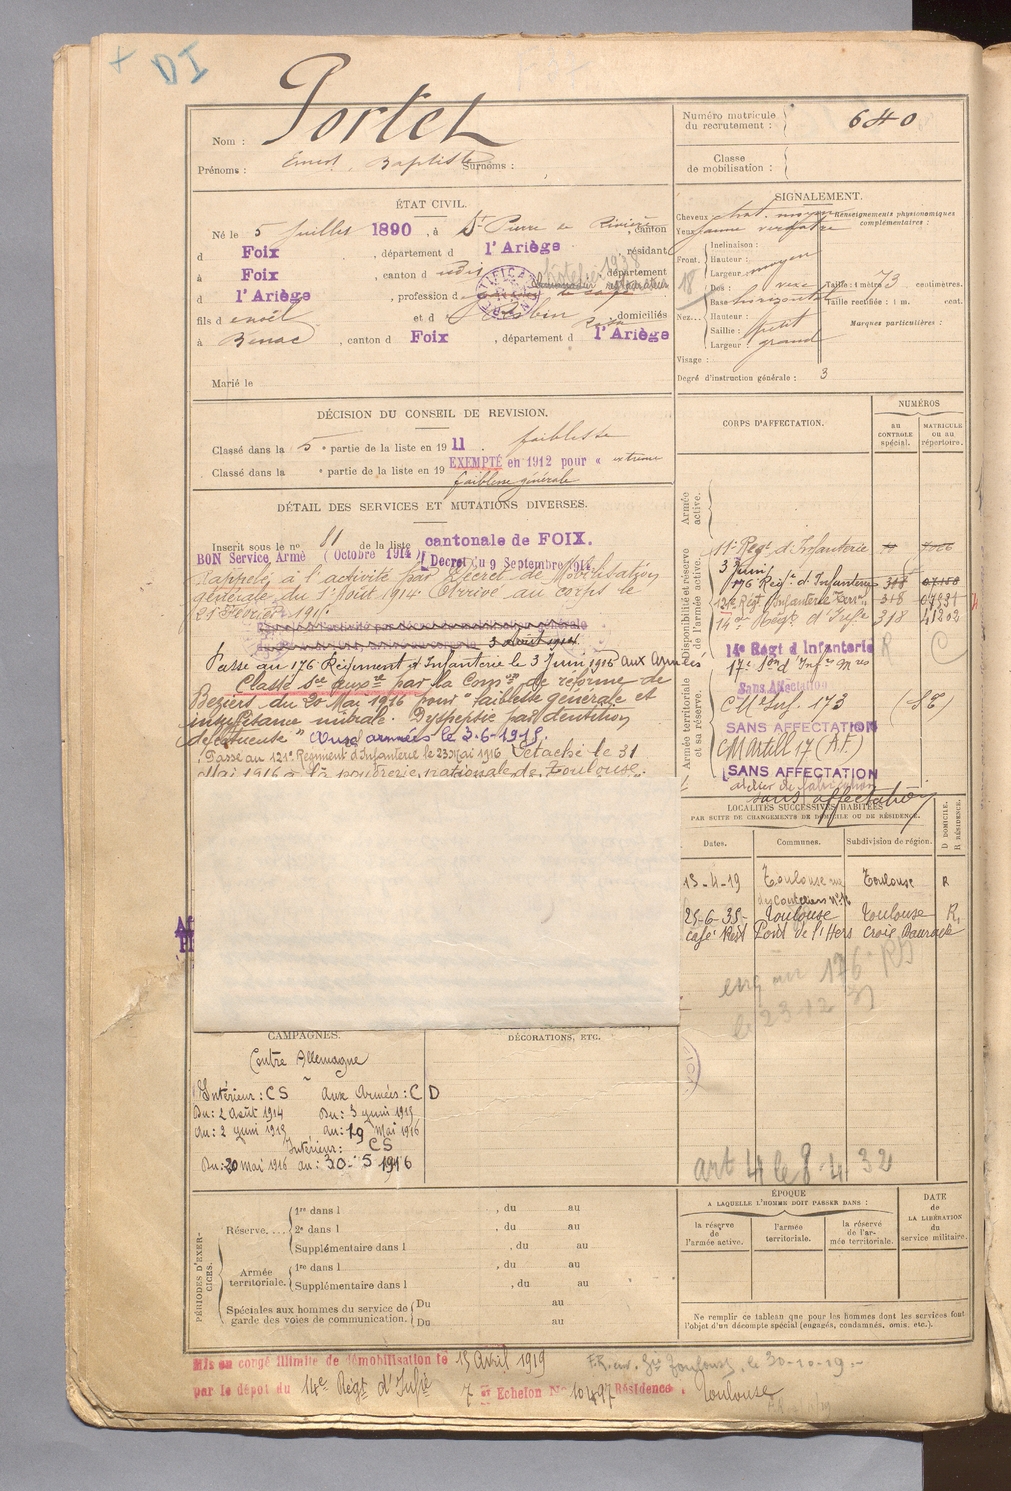 + DI
Nom : Portet
Prénoms : Ernest, Baptiste Surnoms :
Numéro matricule du recrutement : 640
Classe de mobilisation :
ÉTAT CIVIL.
Né le 5 Juillet 1890, à St Pierre de Rivière, canton
d Foix, département d l'Ariège, résidant
à Foix, canton d udit, département
d l'Ariège, profession d
fils d et d domiciliés
à Benac, canton d Foix, département d l'Ariège
Marié le
SIGNALEMENT.
Cheveux chat. moyen
Yeux jaune verdatre
Renseignements physionomiques complémentaires :
Front. Inclinaison :
Hauteur :
Largeur : moyen
Nez... Dos : vexe
Base horizontal
Hauteur :
Saillie : petit
Largeur : grand
Visage :
Taille : 1 mètre 73 centimètres.
Taille rectifiée : 1 m. cent.
Marques particulières :
Degré d'instruction générale : 3
DÉCISION DU CONSEIL DE REVISION.
Classé dans la 5e partie de la liste en 1911. faiblesse
Classé dans la e partie de la liste en 19 EXEMPTÉ en 1912 pour « extreme
faiblesse générale
DÉTAIL DES SERVICES ET MUTATIONS DIVERSES.
Inscrit sous le no 81 de la liste cantonale de FOIX.
BON Service Armé (Octobre 1914) Décret du 9 Septembre 1914
Rappelé à l'activité par Décret de Mobilisation
générale du 1er Août 1914. Arrivé au corps le
21 Février 1915
3 Août 1914.
Passé au 176 Régiment d'Infanterie le 3 Juin 1915 aux armées
Classé sce auxre par la Comon de réforme de
Beziers du 20 Mai 1916 pour " faiblesse générale et
insuffisance mitrale. Dyspepsie par dentition
défectueuse " Aux armées le 3-6-1915.
Passé au 121e Régiment d'Infanterie le 23 Mai 1916 Détaché le 31
Mai 1916 à la poudrerie nationale de Toulouse.
CORPS D'AFFECTATION.
NUMÉROS
AU CONTROLE spécial.
MATRICULE OU AU répertoire.
Armée active.
Disponibilité et réserve de l'armée active.
Armée territoriale et sa réserve.
11e Regt d'Infanterie
3 Juin
176 Regt d'Infanterie 318
121e Régt Infanterie 318
14e Régt d'Infie 318 41202
14e Régt d'Infanterie R C
17e Son d'Infie Mres
Sans Affectation
C M Inf. 173
SANS AFFECTATION
CM Artill 17 (A.F.)
SANS AFFECTATION
atelier de fabrication
sans affectation
LOCALITÉS SUCCESSIVES HABITÉES
PAR SUITE DE CHANGEMENTS DE DOMICILE OU DE RÉSIDENCE.
Dates. Communes. Subdivision de région. D DOMICILE. R RÉSIDENCE.
13-4-19 Toulouse rue Toulouse R
des Couteliers
25-6-35- Toulouse Toulouse R.
Café Rest Pont de l'Hers Croix Daurade
le 23-12
art 4 le 8-4 32
CAMPAGNES.
DÉCORATIONS, ETC.
Contre Allemagne
Intérieur : CS Aux Armées : C D
Du : 2 Août 1914 Du : 3 juin 1915
au : 2 juin 1915 au : 19 Mai 1916
Intérieur : CS
Du : 20 mai 1916 au : 30-5 1916
PÉRIODES D'EXERCICES.
Réserve.... 1re dans l , du au
2e dans l , du au
Supplémentaire dans l , du au
Armée territoriale. 1re dans l , du au
Supplémentaire dans l , du au
Spéciales aux hommes du service de garde des voies de communication. Du au
Du au
ÉPOQUE
A LAQUELLE L'HOMME DOIT PASSER DANS :
la réserve de l'armée active.
l'armée territoriale.
la réserve de l'armée territoriale.
DATE de LA LIBÉRATION du service militaire.
Ne remplir ce tableau que pour les hommes dont les services font l'objet d'un décompte spécial (engagés, condamnés, omis, etc.).
Mis en congé illimité de démobilisation le 15 Avril 1919
par le dépôt du 14e Régt d'Infie 7e Echelon No 10497 Résidence : Toulouse
Toulouse, le 30-10-19.-